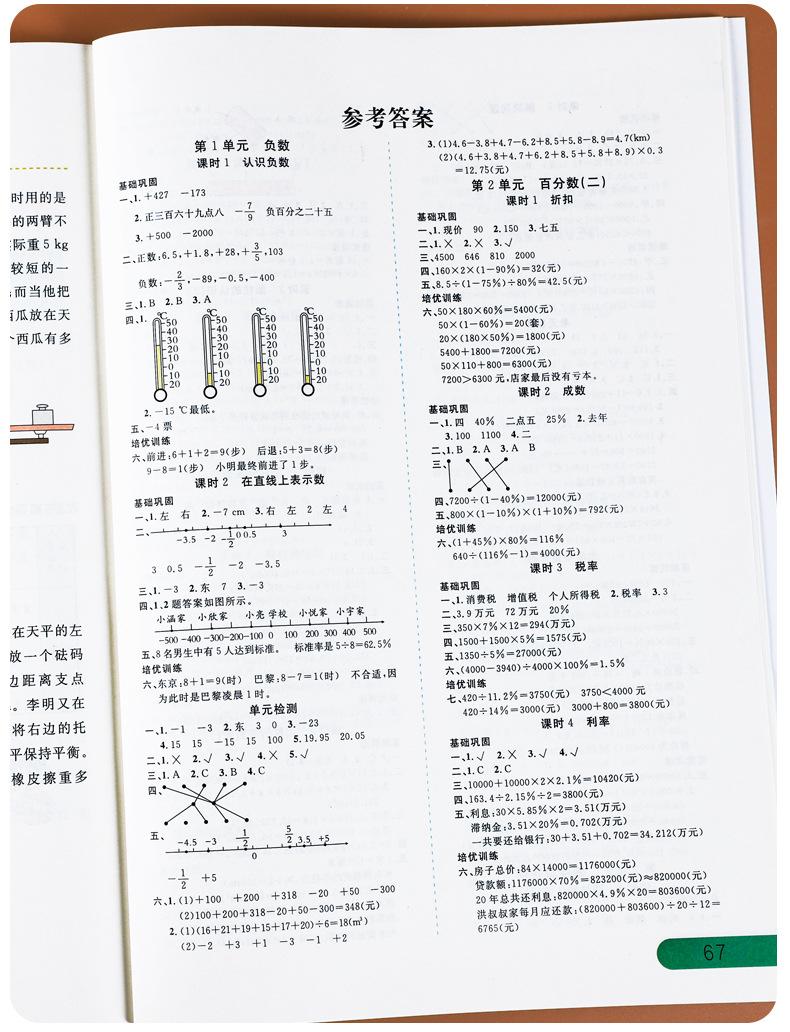 时用的是
的两臂不
际重5 kg
较短的一
而当他把
西瓜放在天
个西瓜有多
在天平的左
放一个砝码
边距离支点
。李明又在
将右边的托
平保持平衡。
橡皮擦重多
参考答案
第1单元 负数
课时1 认识负数
基础巩固
一、1.+427 -173
2.正三百六十九点八 -7/9 负百分之二十五
3.+500 -2000
二、正数:6.5,+1.8,+28,+3/5,103
负数:-2/3,-89,-0.5,-400
三、1.B 2.B 3.A
四、1.
℃ ℃ ℃ ℃
50 50 50 50
40 40 40 40
30 30 30 30
20 20 20 20
10 10 10 10
0 0 0 0
10 10 10 10
20 20 20 20
2.-15 ℃最低。
五、-4票
培优训练
六、前进:6+1+2=9(步) 后退:5+3=8(步)
9-8=1(步) 小明最终前进了1步。
课时2 在直线上表示数
基础巩固
一、1.左 右 2.-7 cm 3.右 左 2 左 4
二、
-3.5 -2 -1/2 0 0.5 3
3 0.5 -1/2 -2 -3.5
三、1.-3 2.东 7 3.-3
四、1、2题答案如图所示。
小涵家 小欣家 小亮 学校 小悦家 小宇家
-500 -400 -300 -200 -100 0 100 200 300 400 500
五、8名男生中有5人达到标准。 标准率是5÷8=62.5%
培优训练
六、东京:8+1=9(时) 巴黎:8-7=1(时) 不合适,因
为此时是巴黎凌晨1时。
单元检测
一、1.-1 -3 2.东 3 0 3.-23
4.15 15 -15 15 100 5.19.95 20.05
二、1.× 2.√ 3.√ 4.× 5.√
三、1.A 2.C 3.B 4.C
四、
五、
-4.5 -3 -1/2 0 5/2 3.5 +5
-1/2 +5
六、1.(1)+100 +200 +318 -20 +50 -300
(2)100+200+318-20+50-300=348(元)
2.(1)(16+21+19+15+17+20)÷6=18(m³)
(2)-2 +3 +1 -3 -1 +2
3.(1)4.6-3.8+4.7-6.2+8.5+5.8-8.9=4.7(km)
(2)(4.6+3.8+4.7+6.2+8.5+5.8+8.9)×0.3
=12.75(元)
第2单元 百分数(二)
课时1 折扣
基础巩固
一、1.现价 90 2.150 3.七五
二、1.× 2.× 3.√
三、4500 646 810 2000
四、160×2×(1-90%)=32(元)
五、8.5÷(1-75%)÷80%=42.5(元)
培优训练
六、50×180×60%=5400(元)
50×(1-60%)=20(套)
20×(180×50%)=1800(元)
5400+1800=7200(元)
50×110+800=6300(元)
7200>6300元,店家最后没有亏本。
课时2 成数
基础巩固
一、1.四 40% 二点五 25% 2.去年
3.100 1100 4.二
二、1.B 2.A 3.A B
三、
四、7200÷(1-40%)=12000(元)
五、800×(1-10%)×(1+10%)=792(元)
培优训练
六、(1+45%)×80%=116%
640÷(116%-1)=4000(元)
课时3 税率
基础巩固
一、1.消费税 增值税 个人所得税 2.税率 3.3
二、3.9万元 72万元 20%
三、350×7%×12=294(万元)
四、1500+1500×5%=1575(元)
五、1350÷5%=27000(元)
六、(4000-3940)÷4000×100%=1.5%
培优训练
七、420÷11.2%=3750(元) 3750<4000元
420÷14%=3000(元) 3000+800=3800(元)
课时4 利率
基础巩固
一、1.√ 2.× 3.√ 4.√
二、1.C 2.C
三、10000+10000×2×2.1%=10420(元)
四、163.4÷2.15%÷2=3800(元)
五、利息:30×5.85%×2=3.51(万元)
滞纳金:3.51×20%=0.702(万元)
一共要还给银行:30+3.51+0.702=34.212(万元)
培优训练
六、房子总价:84×14000=1176000(元)
贷款额:1176000×70%=823200(元)≈820000(元)
20年总共还利息:820000×4.9%×20=803600(元)
洪叔叔家每月应还款:(820000+803600)÷20÷12=
6765(元)
67